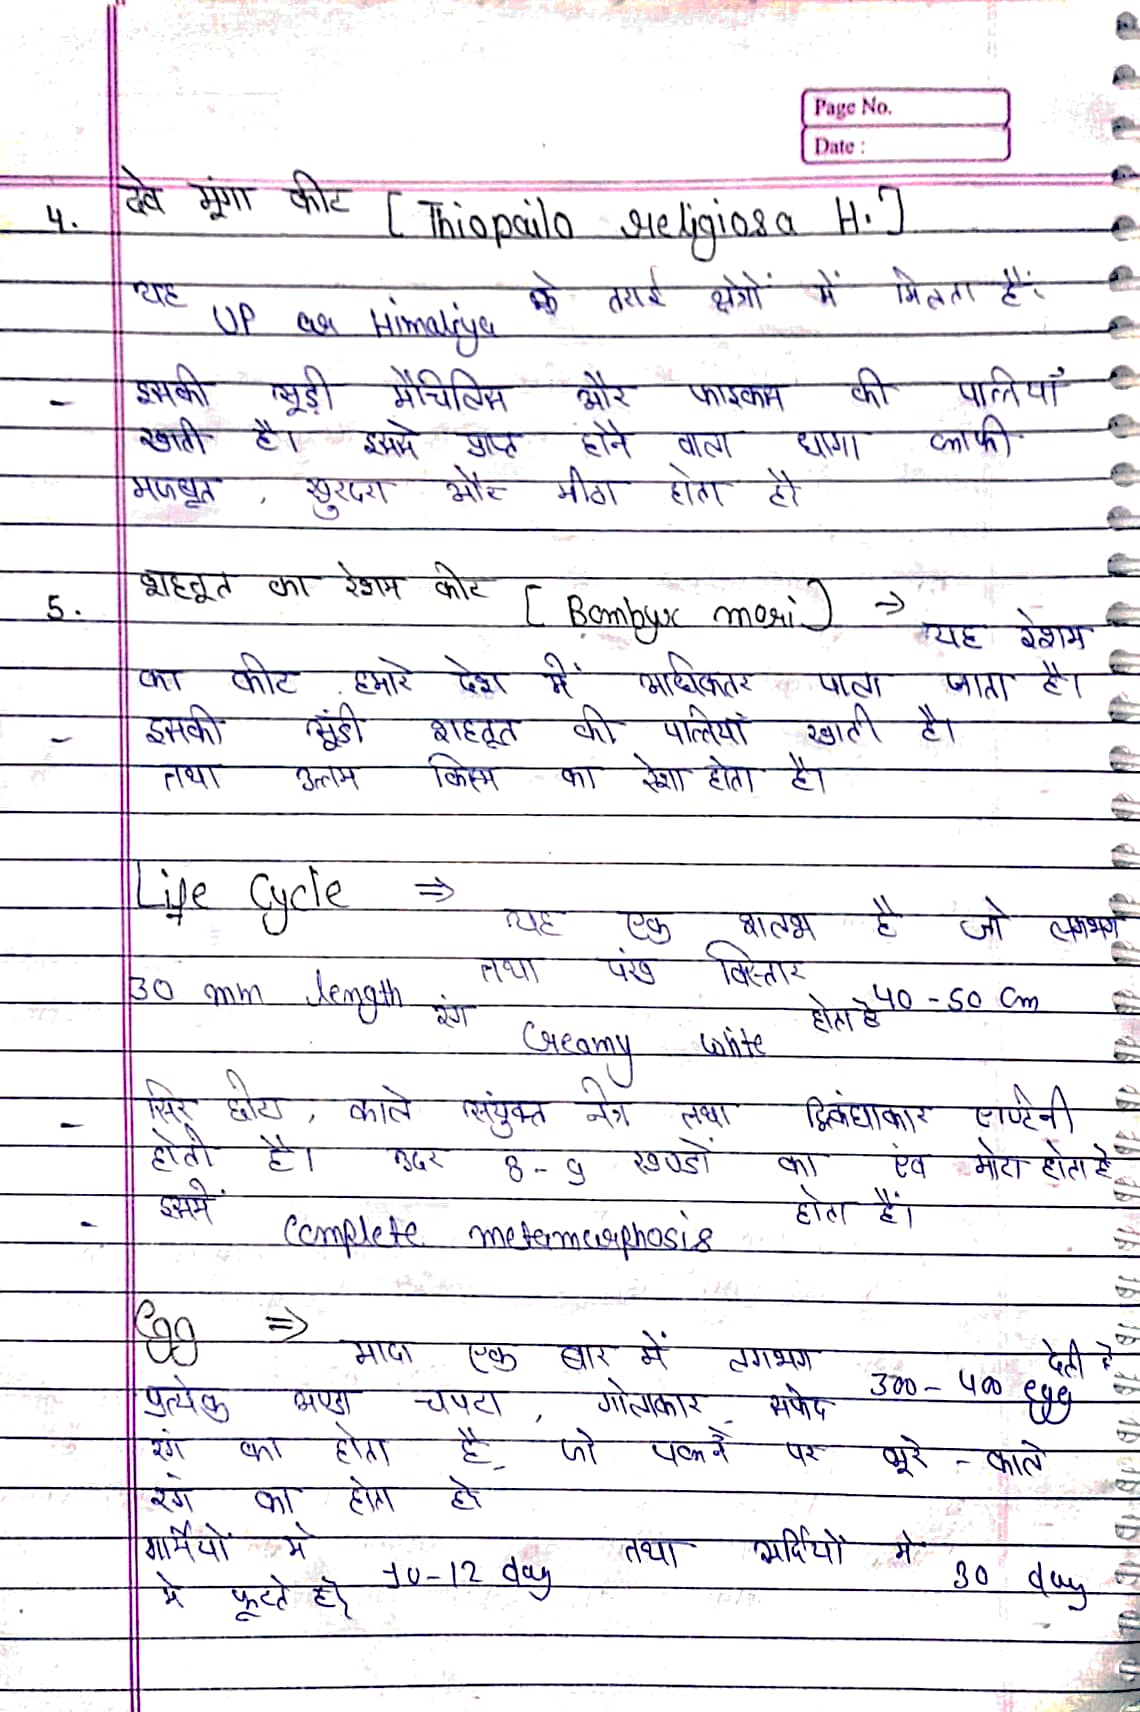 Page No.
Date :
4. देव मूंगा कीट [Thiopailo religiosa H.]
यह UP & Himaliya के तराई क्षेत्रों में मिलता है।
- इसकी सूड़ी मैचिलिस और फाइकस की पत्तियाँ
खाती है। इससे प्राप्त होने वाला धागा काफी
मजबूत, खुरदरा और मोटा होता है।
5. शहतूत का रेशम कीट [Bombyx mori] → यह रेशम
का कीट हमारे देश में अधिकतर पाला जाता है।
- इसकी सूंडी शहतूत की पत्तियां खाती है।
तथा उत्तम किस्म का रेशा होता है।
Life Cycle ⇒ यह एक शलभ है जो लगभग
30 mm length तथा पंख विस्तार 40-50 cm होता है
रंग Creamy white
- सिर छोटा, काले संयुक्त नेत्र तथा द्विकंघाकार एण्टेनी
होती है। उदर 8-9 खण्डों का एंव मोटा होता है
- इसमें Complete metamorphosis होता हैं।
Egg ⇒ मादा एक बार में लगभग 300-400 egg देती है
प्रत्येक अण्डा चपटा, गोलाकार सफेद
रंग का होता है, जो पकने पर भूरे - काले
रंग का होता है
गर्मियों मे 10-12 day तथा सर्दियों मे 30 day
मे फूटते है।